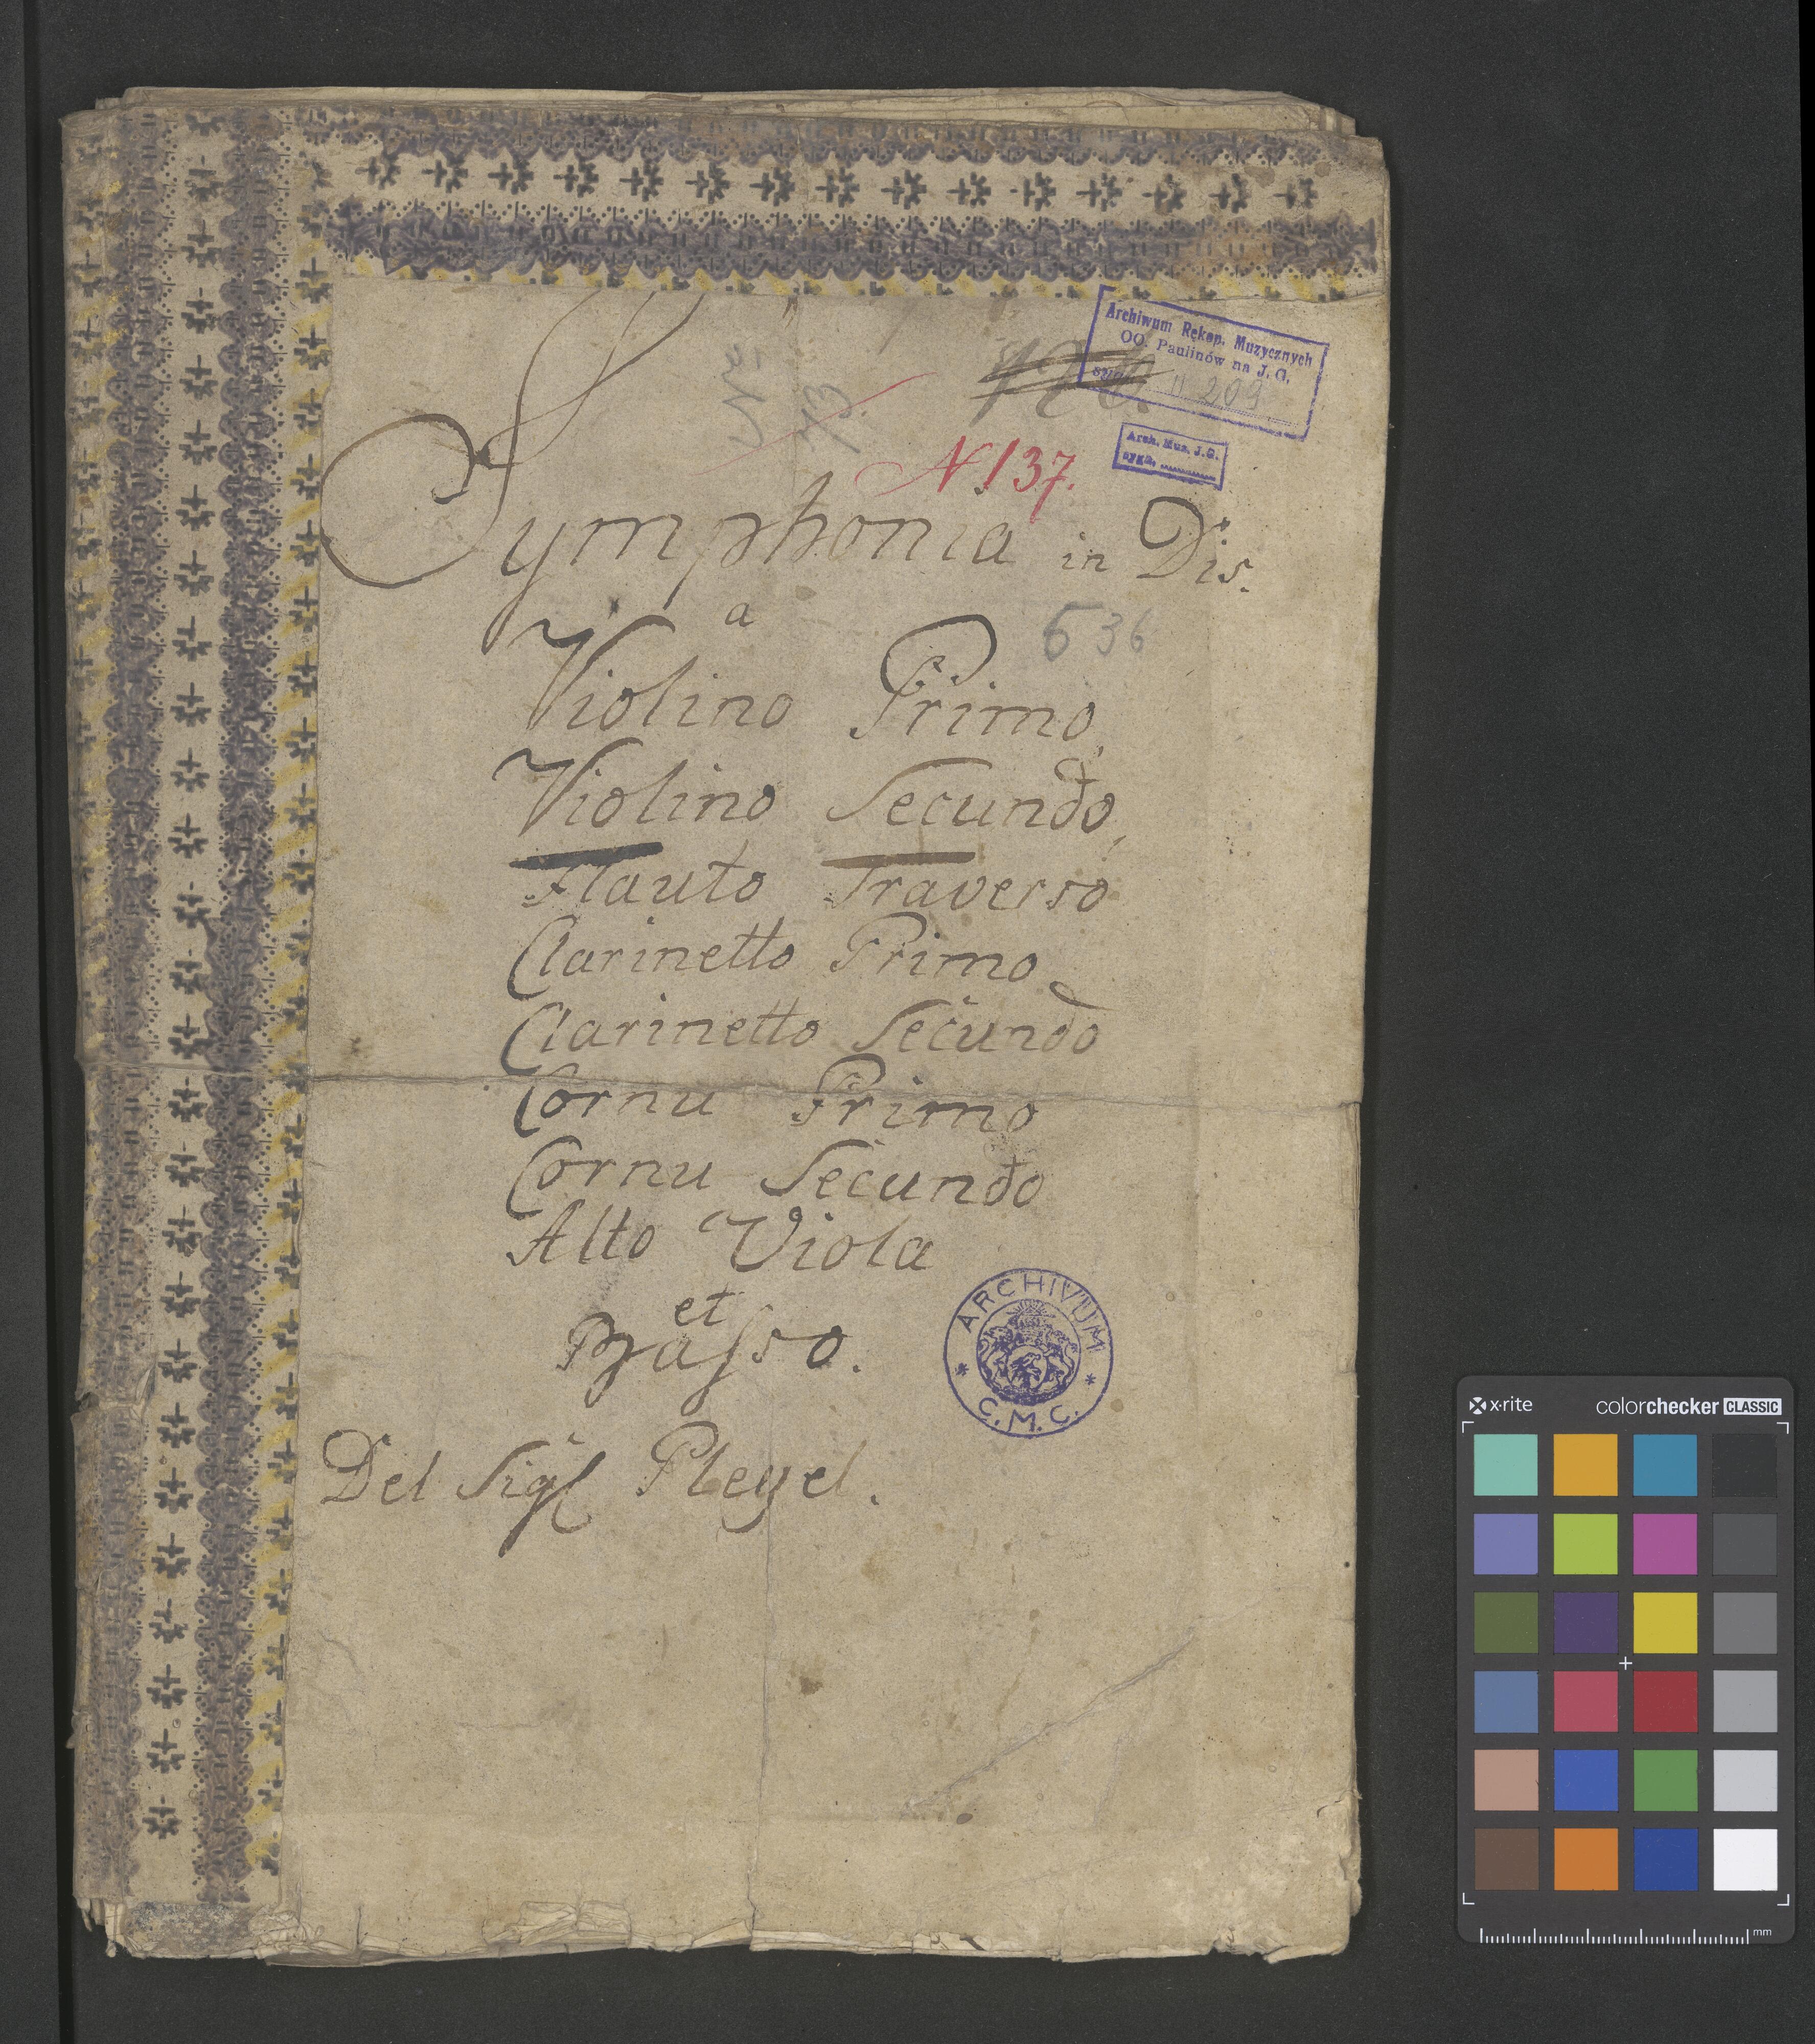 Archiwum Rękop. Muzycznych
OO. Paulinów na J. G.
sygn. II 209
Arch. Muz. J.G.
sygn. ............
No
73.
N 137.
Symphonia in Dis.
a
636
Violino Primo,
Violino Secundo,
Flauto Traverso
Clarinetto Primo
Clarinetto Secundo
Cornu Primo
Cornu Secundo
Alto Viola
et
Basso.
ARCHIVUM
* C.M.C. *
Del Sigl Pleyel.
x-rite
colorchecker CLASSIC
mm